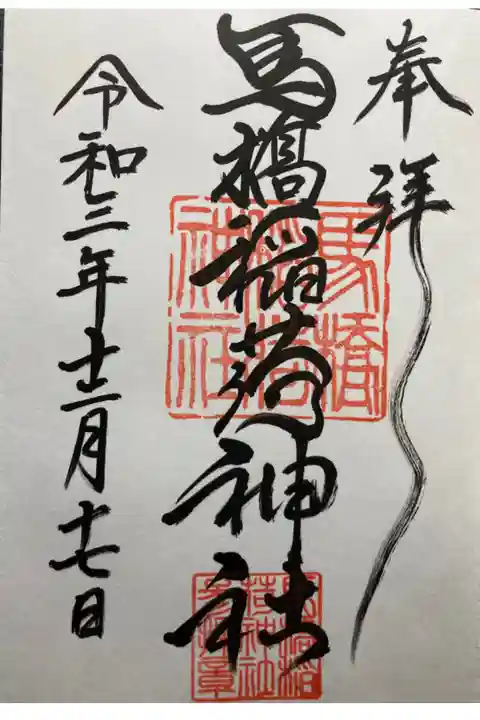 奉拝
馬橋稲荷神社
令和三年十二月十七日
馬橋
稲荷
神社
馬橋稲
荷神社